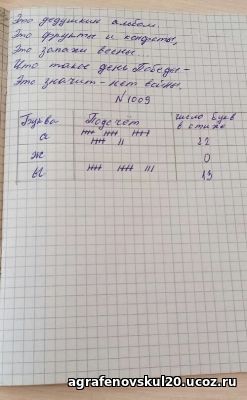 Это дедушкин альбом.
Это фрукты и конфеты,
Это запахи весны.
Что такое день Победы -
Это значит - нет войны.
№1009
Буква Подсчёт число букв
в стихе
а 22
ж 0
ы 13
agrafenovskul20.ucoz.ru